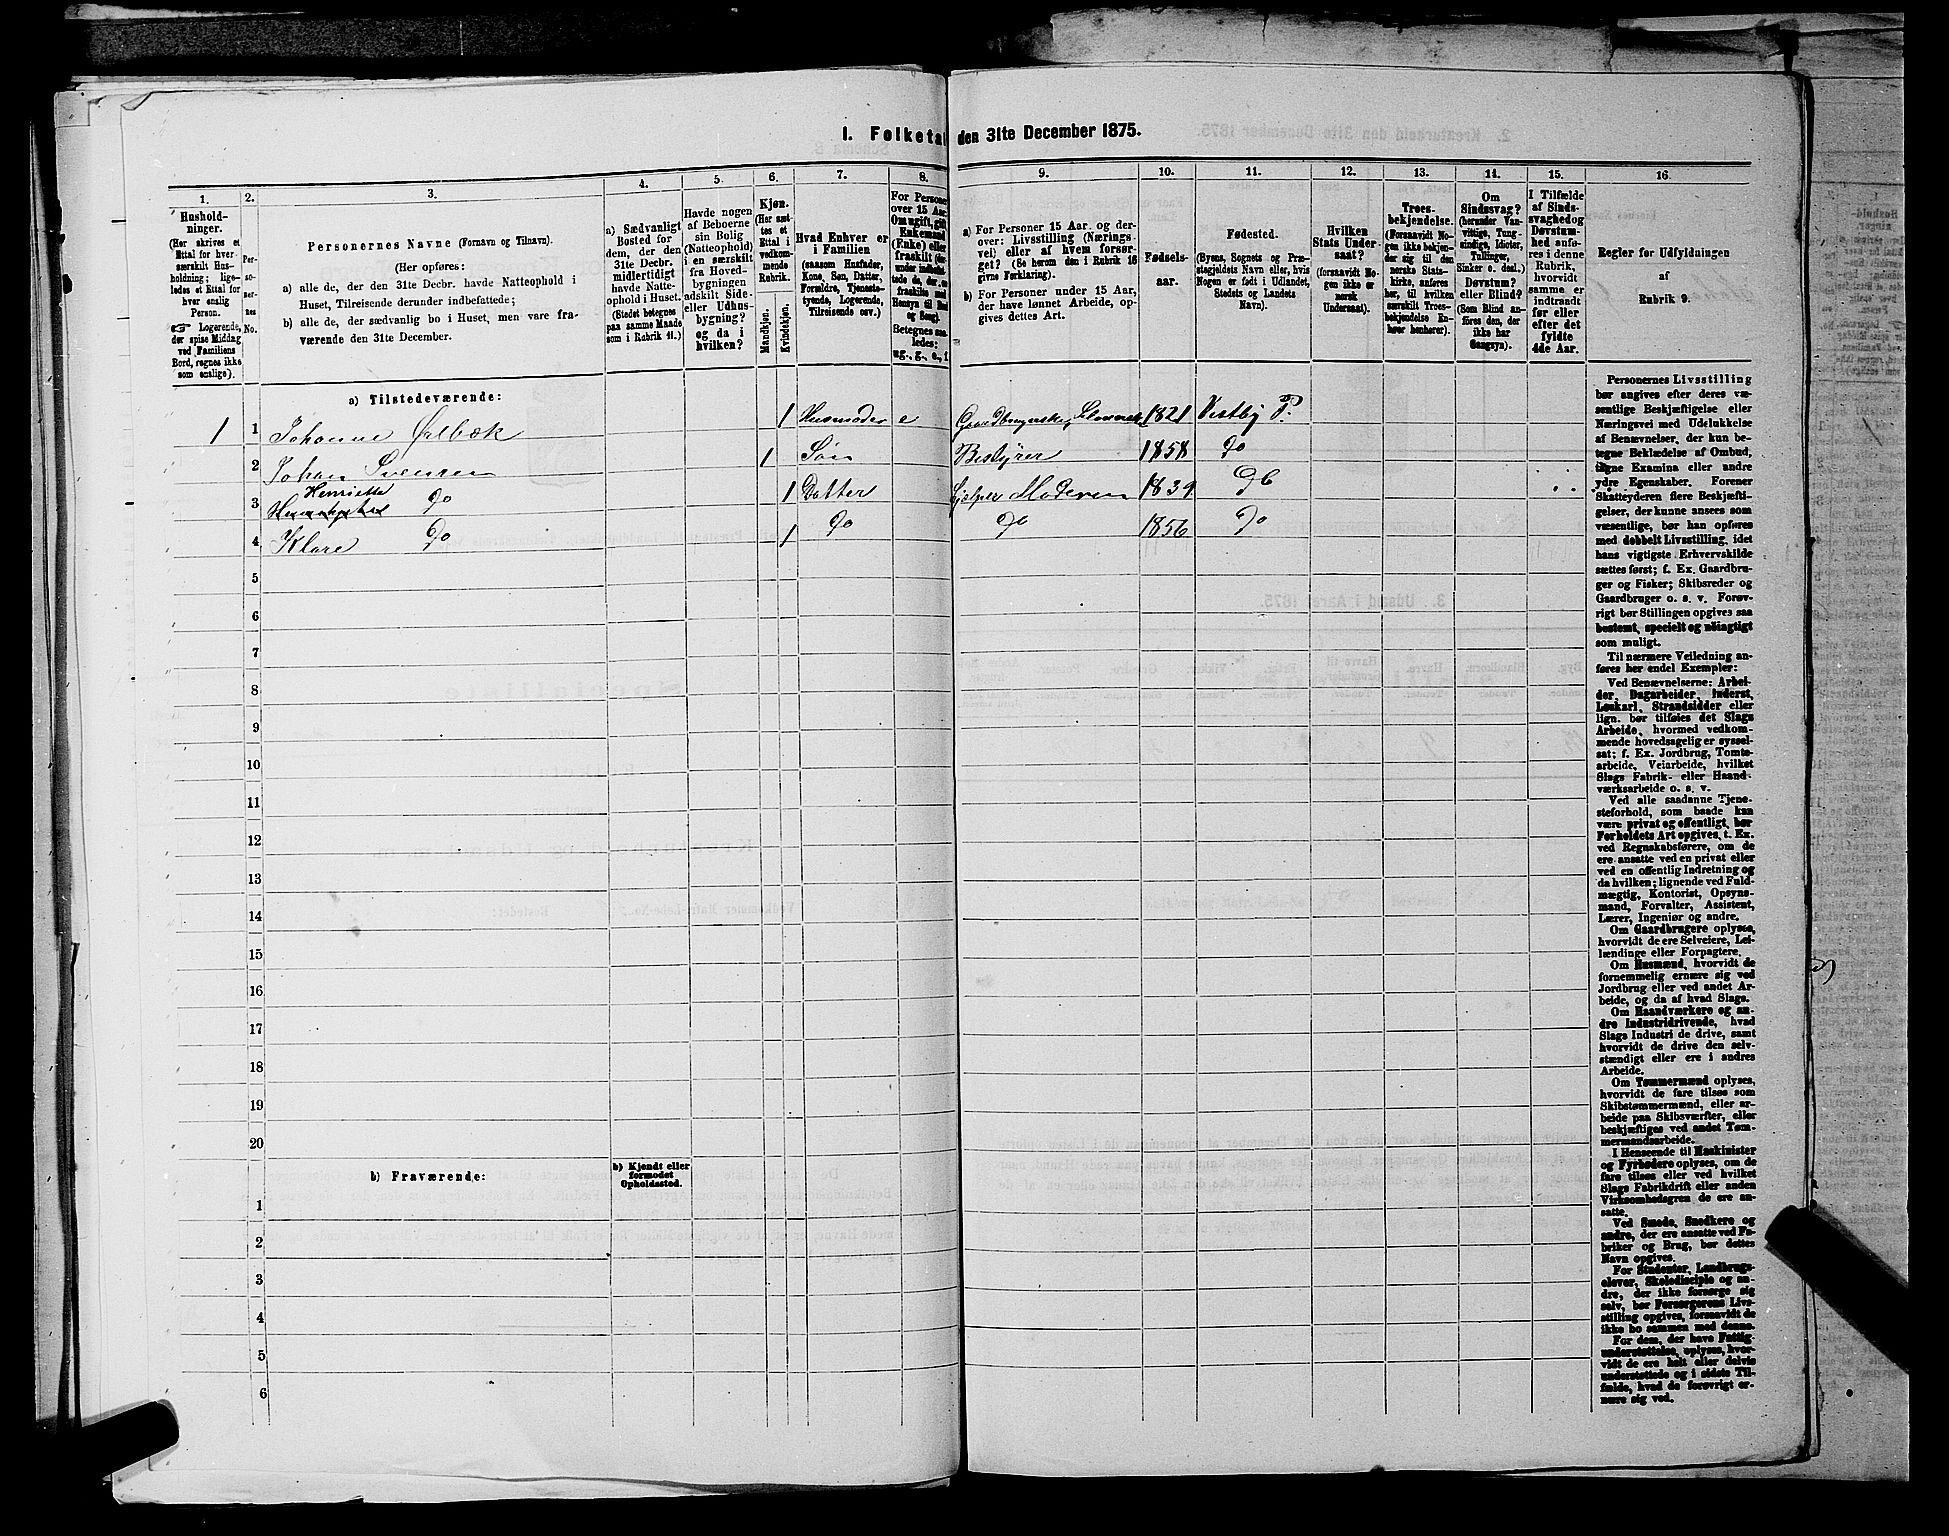 I. Folketæ
den 31te December 1875.
1.
Hushold-
ninger.
(Her skrives et
Ettal for hver
særskilt Hus-
holdning; lige-
ledes et Ettal for
hver enslig
Person.
Logerende,
der spise Middag
ved Familiens
Bord, regnes ikke
som enslige).
2.
Per-
so-
ner-
nes
No.
3.
Personernes Navne (Fornavn og Tilnavn).
(Her opføres:
a) alle de, der den 31te Decbr. havde Natteophold i
Huset, Tilreisende derunder indbefattede;
b) alle de, der sædvanlig bo i Huset, men vare fra-
værende den 31te December.
4.
a) Sædvanligt
Bosted for
dem, der den
31te Decbr.
midlertidigt
havde Natte-
ophold i Huset.
(Stedet betegnes
paa samme Maade
som i Rubrik 11.)
5.
Havde nogen
af Beboerne
sin Bolig
(Natteophold)
i en særskilt
fra Hoved-
bygningen
adskilt Side-
eller Udhus-
bygning?
og da i
hvilken?
6.
Kjøn.
(Her sæt-
tes et
Ettal i
vedkom-
mende
Rubrik.
Mandkjøn.
Kvindekjøn.
7.
Hvad Enhver er
i Familien
(saasom Husfader,
Kone, Søn, Datter,
Forældre, Tjeneste-
tyende, Logerende,
Tilreisende osv.)
8.
For Persone
over 15 Aar.
Om ugift, gift
Enkemand
(Enke) eller
fraskilt
Betegnes saa-
ledes:
ug., g., e., f.
9.
a) For Personer 15 Aar. og der-
over: Livsstilling (Nærings-
vei) eller af hvem forsør-
get? (Se herom den i Rubrik 16
givne Forklaring).
b) For Personer under 15 Aar,
der have lønnet Arbeide, op-
gives dettes Art.
10.
Fødsels-
aar.
11.
Fødested.
(Byens, Sognets og Præ-
stegjeldets Navn eller, hvis
Nogen er født i Udlandet,
Stedets og Landets
Navn).
12.
Hvilken
Stats Under-
saat?
(forsaavidt No-
gen ikke er
norsk
Undersaat).
13.
Troes-
bekjendelse.
(Forsaavidt No-
gen ikke bekjen-
der sig til den
norske Stats-
kirke, anføres
her, til hvilken
særskilt Troes-
bekjendelse En-
hver henhører).
14.
Om
Sindssvag?
(herunder Van-
vittige, Tung-
sindige, Idioter,
Tullinger,
Sinker o. desl.)
Døvstum?
eller Blind?
(Som Blind an-
føres den, der
ikke har
Gangsyn).
15.
I Tilfælde
af Sinds-
svaghed og
Døvstum-
hed anfø-
res i denne
Rubrik,
hvorvidt
samme er
indtraadt
før eller
efter det
fyldte
4de Aar.
16.
Regler for Udfyldningen
af
Rubrik 9.
a) Tilstedeværende:
1 1 Johanne Ørebæk 1 Husmoder e Gaardbrugerske, 1821 Vestby P.
2 Johan Svensen 1 Søn Bestyrer 1858 Do
Henriette
3 Do 1 Datter hjelper Moderen 1839 Do
4 Klare Do 1 Do Do 1856 Do
5
6
7
8
9
10
11
12
13
14
15
16
17
18
19
20
b) Fraværende:
b) Kjendt eller
formodet
Opholdssted.
1
2
3
4
5
6
Personernes Livsstilling
bør angives efter deres væ-
sentlige Beskjæftigelse eller
Næringsvei med Udelukkelse
af Benævnelser, der kun be-
tegne Beklædelse af Ombud,
tagne Examina eller andre
ydre Egenskaber. Forener
Skatteyderen flere Beskjæfti-
gelser, der kunne ansees som
væsentlige, bør han opføres
med dobbelt Livsstilling, idet
hans vigtigste Erhvervskilde
sættes først; f. Ex. Gaardbru-
ger og Fisker; Skibsreder og
Gaardbruger o. s. v. Forøv-
rigt bør Stillingen opgives saa
bestemt, specielt og nøiagtigt
som muligt.
Til nærmere Veiledning an-
føres her endel Exempler:
Ved Benævnelserne: Arbei-
der, Dagarbeider, Inderst,
Løskarl, Strandsidder eller
lign. bør tilføies det Slags
Arbeide, hvormed vedkom-
mende hovedsagelig er syssel-
sat; f. Ex. Jordbrug, Tomte-
arbeide, Veiarbeide, hvilket
Slags Fabrik- eller Haand-
værksarbeide o. s. v.
Ved alle saadanne Tjene-
steforhold, som baade kan
være privat og offentligt, bør
Forholdets Art opgives, t. Ex.
ved Regnskabsførere, om de
ere ansatte ved en privat eller
ved en offentlig Indretning og
da hvilken; lignende ved Fuld-
mægtig, Kontorist, Opsyns-
mand, Forvalter, Assistent,
Lærer, Ingeniør og andre.
Om Gaardbrugere oplyses,
hvorvidt de ere Selveiere, Lei-
lændinge eller Forpagtere.
Om Husmænd, hvorvidt de
fornemmelig ernære sig ved
Jordbrug eller ved andet Ar-
beide, og da af hvad Slags.
Om Haandværkere og an-
dre Industridrivende, hvad
Slags Industri de drive, samt
hvorvidt de drive den selv-
stændigt eller ere i andres
Arbeide.
Om Tømmermænd oplyses,
hvorvidt de fare tilsøs som
Skibstømmermænd, eller ar-
beide paa Skibsværfter, eller
beskjæftiges ved andet Tøm-
mermandsarbeide.
I Henseende til Maskinister
og Fyrbødere oplyses, om de
fare tilsøs eller ved hvilket
Slags Fabrikdrift eller anden
Virksomhedsgren de ere an-
satte.
Ved Smede, Snedkere og
andre, der ere ansatte ved Fa-
briker og Brug, bør dettes
Navn opgives.
For Studenter, Landbrugs-
elever, Skoledisciple og an-
dre, der ikke forsørge sig
selv, bør Forsørgerens Livs-
stilling opgives, forsaavidt de
ikke bo sammen med denne.
For dem, der have Fattig-
understøttelse, oplyses, hvor-
vidt de ere helt eller delvis
understøttede og i sidste Til-
fælde, hvad de forøvrigt er-
nære sig ved.